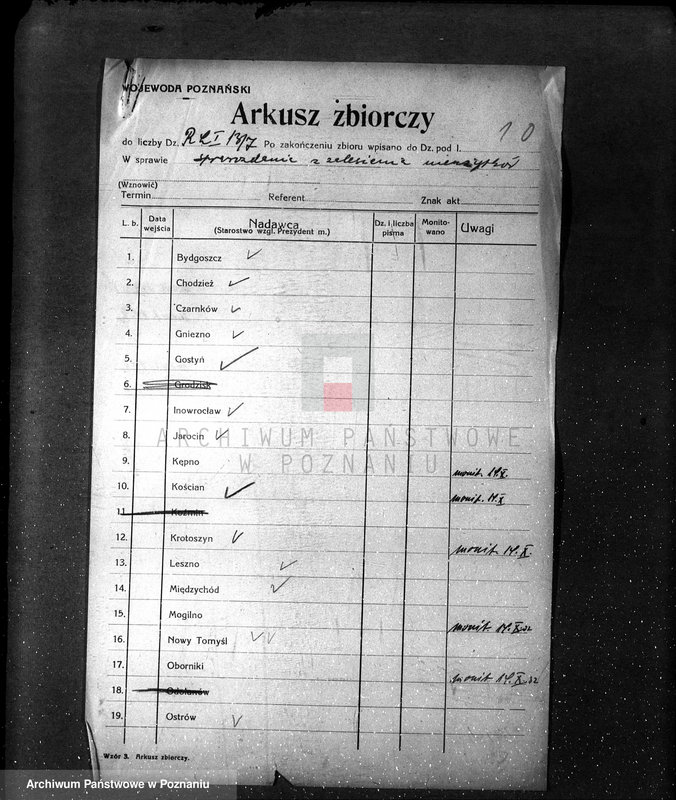 WOJEWODA POZNAŃSKI
Arkusz zbiorczy
10
do liczby Dz. RLI 13/7 Po zakończeniu zbioru wpisano do Dz. pod l.
W sprawie sprawozdania z zalesienia nieużytków
(Wznowić)
Termin Referent Znak akt
L. b. Data wejścia Nadawca (Starostwo wzgl. Prezydent m.) Dz. i liczba pisma Monitowano Uwagi
1. Bydgoszcz
2. Chodzież
3. Czarnków
4. Gniezno
5. Gostyń
6. Grodzisk
7. Inowrocław
8. Jarocin
9. Kępno monit. 14.X.
10. Kościan monit. 14.X
11. Koźmin
12. Krotoszyn monit. 14.X.
13. Leszno
14. Międzychód
15. Mogilno monit. 14.X.32
16. Nowy Tomyśl
17. Oborniki monit. 14.X.32
18. Odolanów
19. Ostrów
Wzór 3. Arkusz zbiorczy.
ARCHIWUM PAŃSTWOWE
W POZNANIU
Archiwum Państwowe w Poznaniu